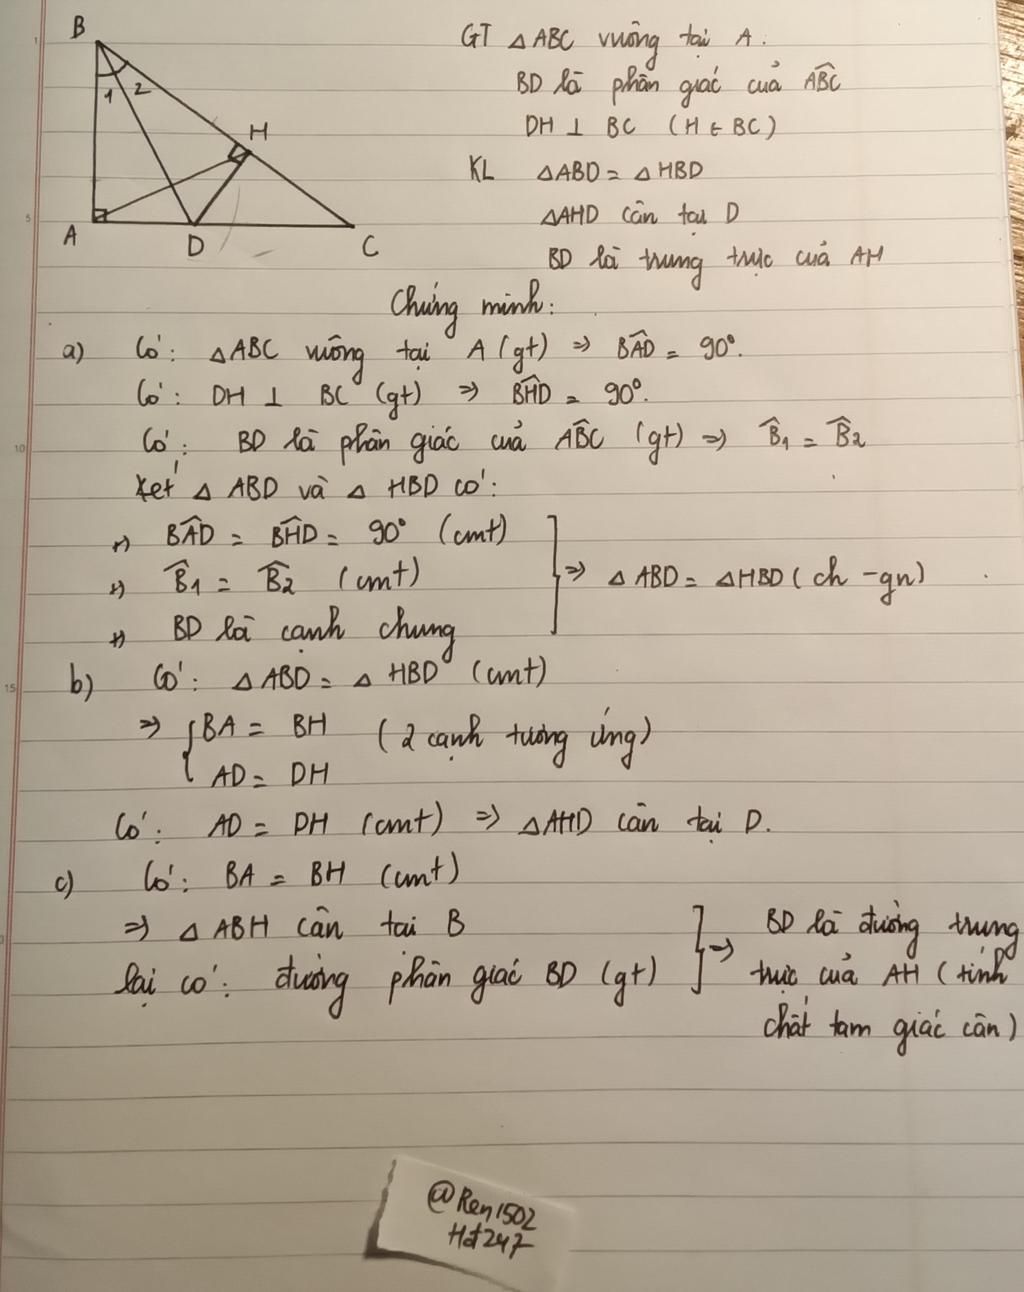 B
1 2
H
A D C
GT △ABC vuông tại A.
BD là phân giác của ABC^
DH ⊥ BC (H ∈ BC)
KL △ABD = △HBD
△AHD cân tại D
BD là trung trực của AH
Chứng minh:
a) Có: △ABC vuông tại A (gt) => BAD^ = 90°.
Có: DH ⊥ BC (gt) => BHD^ = 90°.
Có: BD là phân giác của ABC^ (gt) => B̂1 = B̂2
Xét △ ABD và △ HBD có:
+) BAD^ = BHD^ = 90° (cmt)
+) B̂1 = B̂2 (cmt)
+) BD là cạnh chung
=> △ABD = △HBD (ch - gn)
b) Có: △ABD = △ HBD (cmt)
=> { BA = BH (2 cạnh tương ứng)
AD = DH
Có: AD = DH (cmt) => △AHD cân tại D.
c) Có: BA = BH (cmt)
=> △ABH cân tại B
lại có: đường phân giác BD (gt)
=> BD là đường trung
trực của AH (tính
chất tam giác cân)
@Ren1502
Hd247